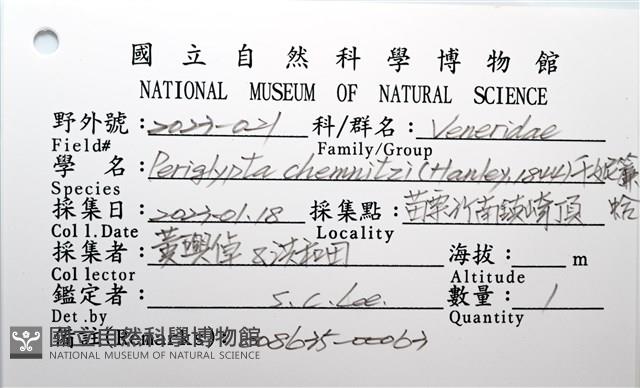 國立自然科學博物館
NATIONAL MUSEUM OF NATURAL SCIENCE
野外號: 2023-021 科/群名: Veneridae
Field# Family/Group
學 名: Periglypta chemnitzi (Hanley, 1844) 千姬簾蛤
Species
採集日: 2023-01.18 採集點: 苗栗竹南鎮崎頂
Col l. Date Locality
採集者: 黃興倬 & 洪和田 海拔: m
Collector Altitude
鑑定者: S. C. Lee. 數量: 1
Det. by Quantity
備註(Remarks):
國立自然科學博物館
NATIONAL MUSEUM OF NATURAL SCIENCE